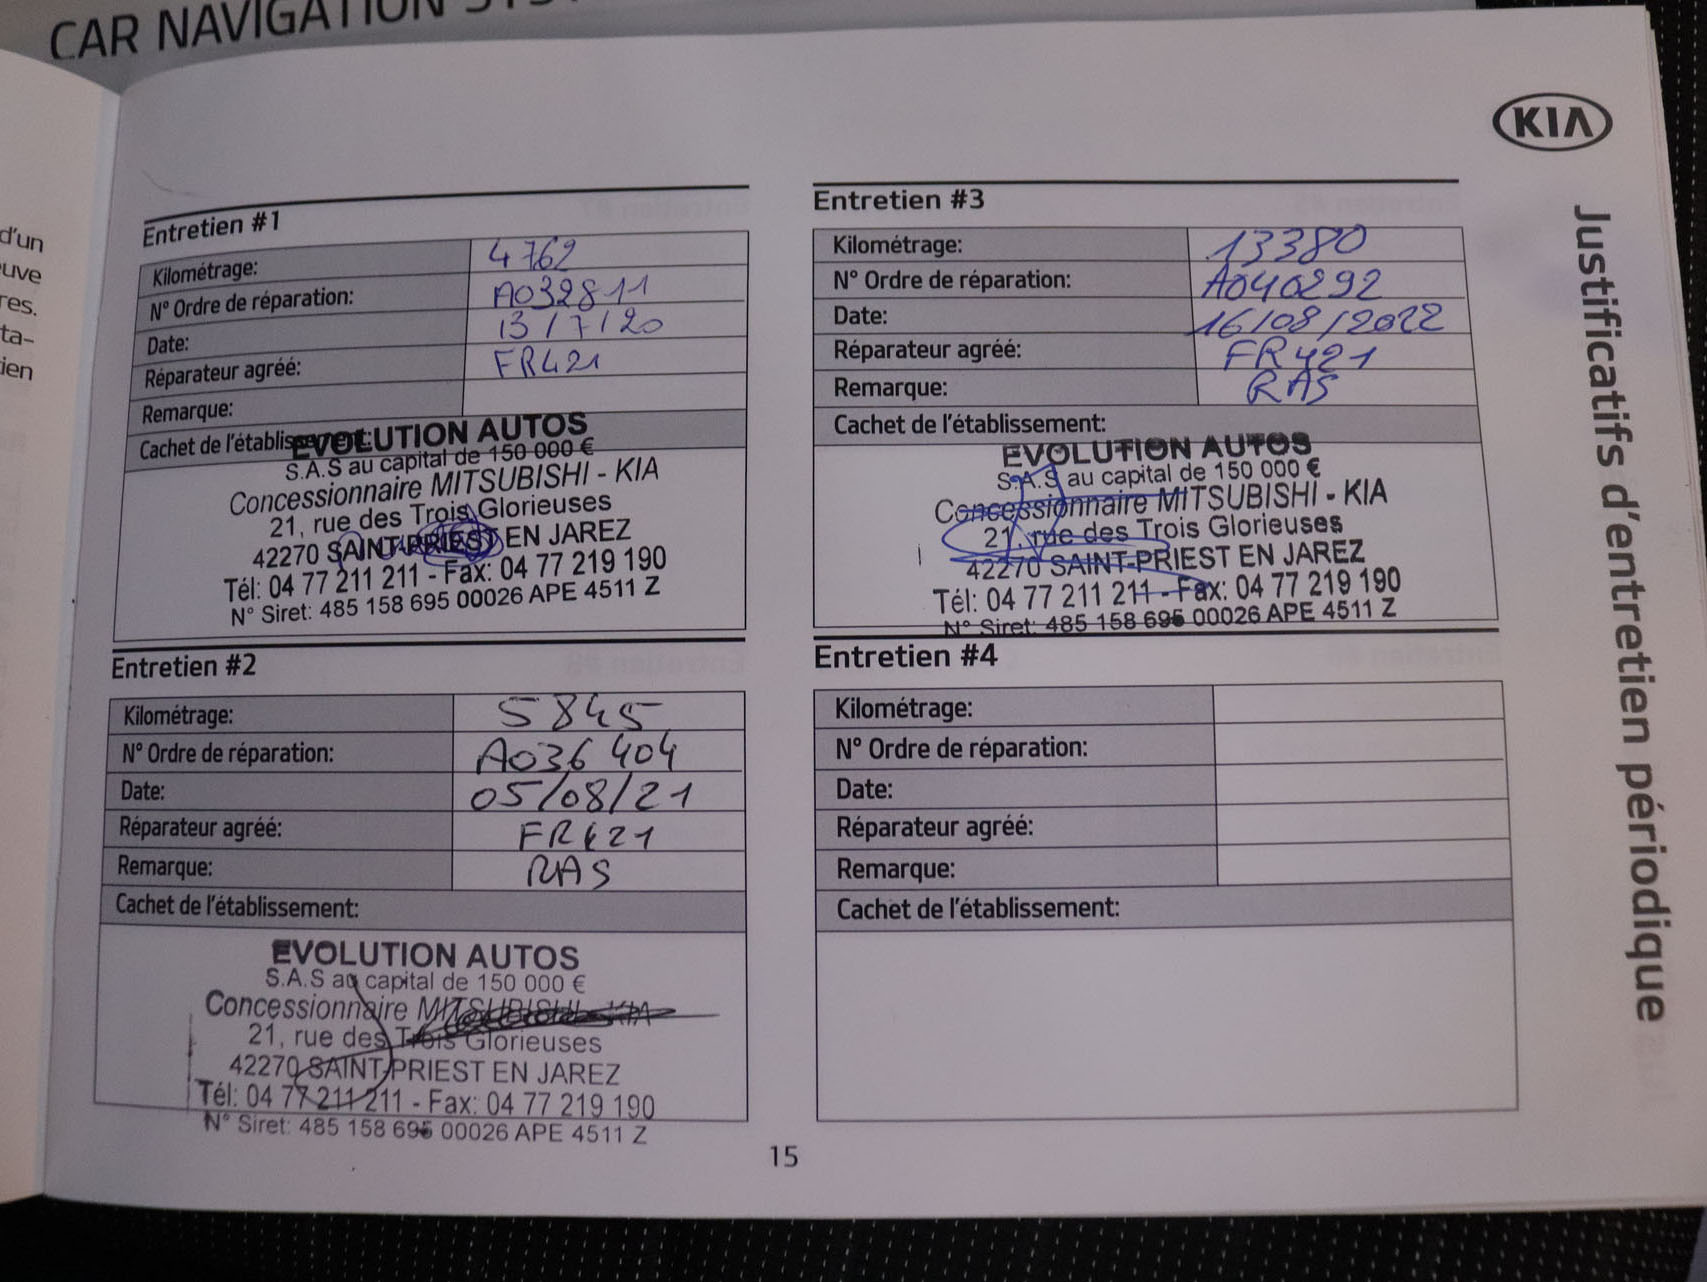 CAR NAVIGATION
d'un
euve
res.
ta-
ien
KIA
Justificatifs d'entretien périodique
Entretien #1
Kilométrage: 4762
N° Ordre de réparation: A032811
Date: 13/7/20
Réparateur agréé: FR421
Remarque:
Cachet de l'établissement:
EVOLUTION AUTOS
S.A.S au capital de 150 000 €
Concessionnaire MITSUBISHI - KIA
21, rue des Trois Glorieuses
42270 SAINT-PRIEST EN JAREZ
Tél: 04 77 211 211 - Fax: 04 77 219 190
N° Siret: 485 158 695 00026 APE 4511 Z
Entretien #2
Kilométrage: 5845
N° Ordre de réparation: A036404
Date: 05/08/21
Réparateur agréé: FR421
Remarque: RAS
Cachet de l'établissement:
EVOLUTION AUTOS
S.A.S au capital de 150 000 €
Concessionnaire MITSUBISHI - KIA
21, rue des Trois Glorieuses
42270 SAINT-PRIEST EN JAREZ
Tél: 04 77 211 211 - Fax: 04 77 219 190
N° Siret: 485 158 695 00026 APE 4511 Z
Entretien #3
Kilométrage: 13380
N° Ordre de réparation: A040292
Date: 16/08/2022
Réparateur agréé: FR421
Remarque: RAS
Cachet de l'établissement:
EVOLUTION AUTOS
S.A.S au capital de 150 000 €
Concessionnaire MITSUBISHI - KIA
21, rue des Trois Glorieuses
42270 SAINT-PRIEST EN JAREZ
Tél: 04 77 211 211 - Fax: 04 77 219 190
N° Siret: 485 158 695 00026 APE 4511 Z
Entretien #4
Kilométrage:
N° Ordre de réparation:
Date:
Réparateur agréé:
Remarque:
Cachet de l'établissement:
15